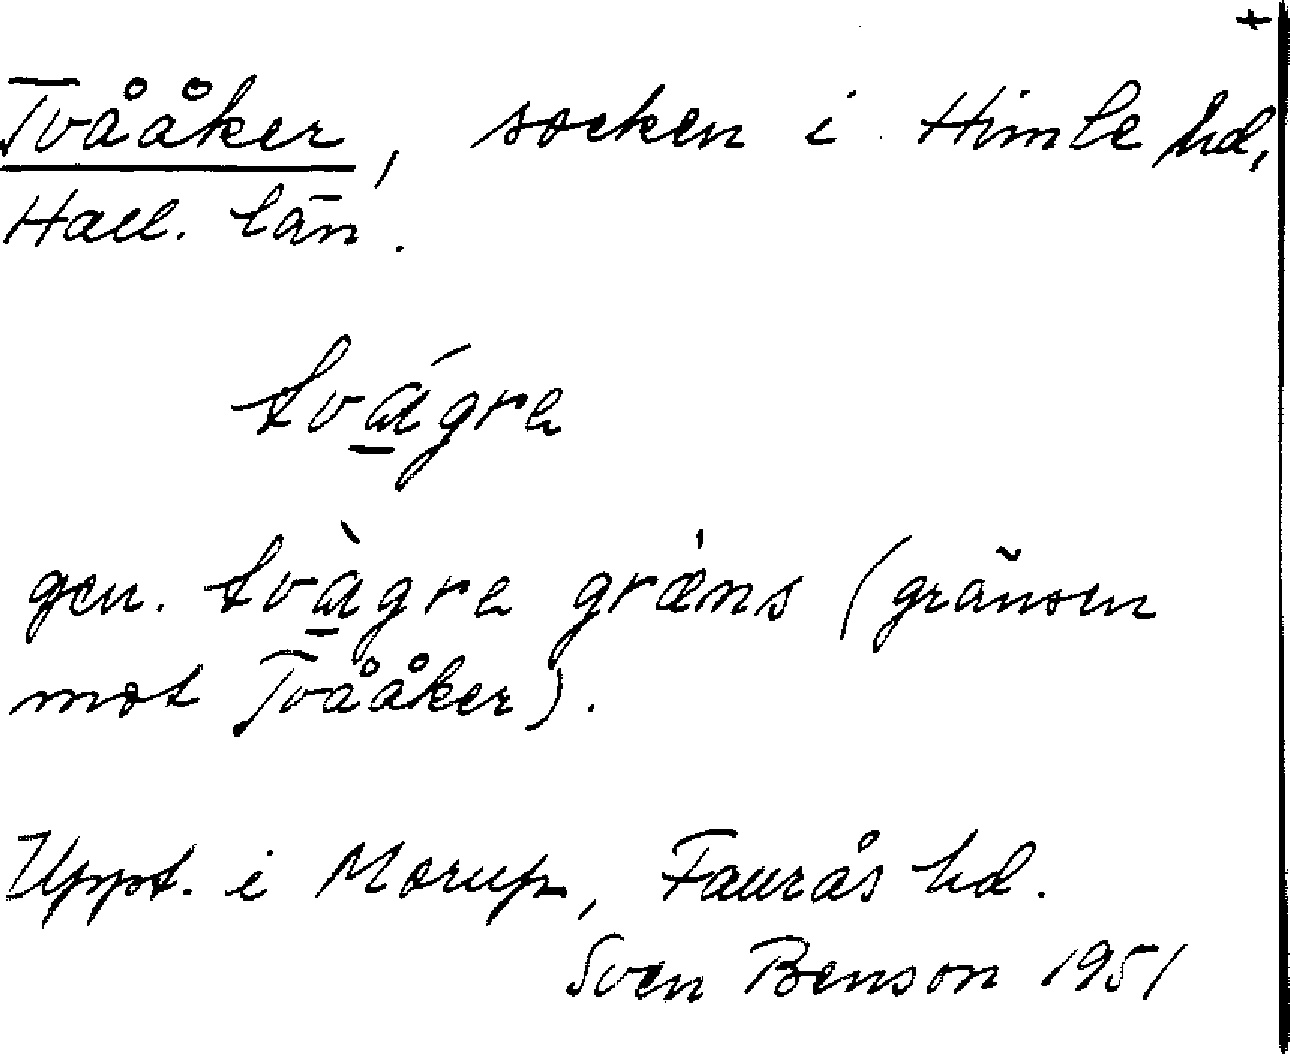 +
Tvååker, socken i Himle hd,
Hall. län.
tvágrɐ
gen. tvàgrɐ græ̍ns (gränsen
mot Tvååker).
Uppt. i Morup, Faurås hd.
Sven Benson 1951